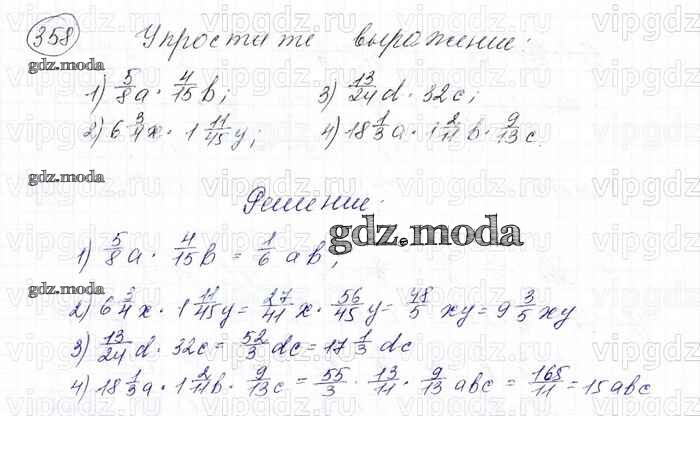 358 Упростите выражение:
gdz.moda
1) 5/8 a · 4/15 b; 3) 13/24 d · 32c;
2) 6 3/4 x · 1 11/45 y; 4) 18 1/3 a · 1 2/11 b · 9/13 c.
gdz.moda
Решение:
gdz.moda
1) 5/8 a · 4/15 b = 1/6 ab;
gdz.moda
2) 6 3/4 x · 1 11/45 y = 27/41 x · 56/45 y = 48/5 xy = 9 3/5 xy
3) 13/24 d · 32c = 52/3 dc = 17 1/3 dc
4) 18 1/3 a · 1 2/11 b · 9/13 c = 55/3 · 13/11 · 9/13 abc = 165/11 = 15abc